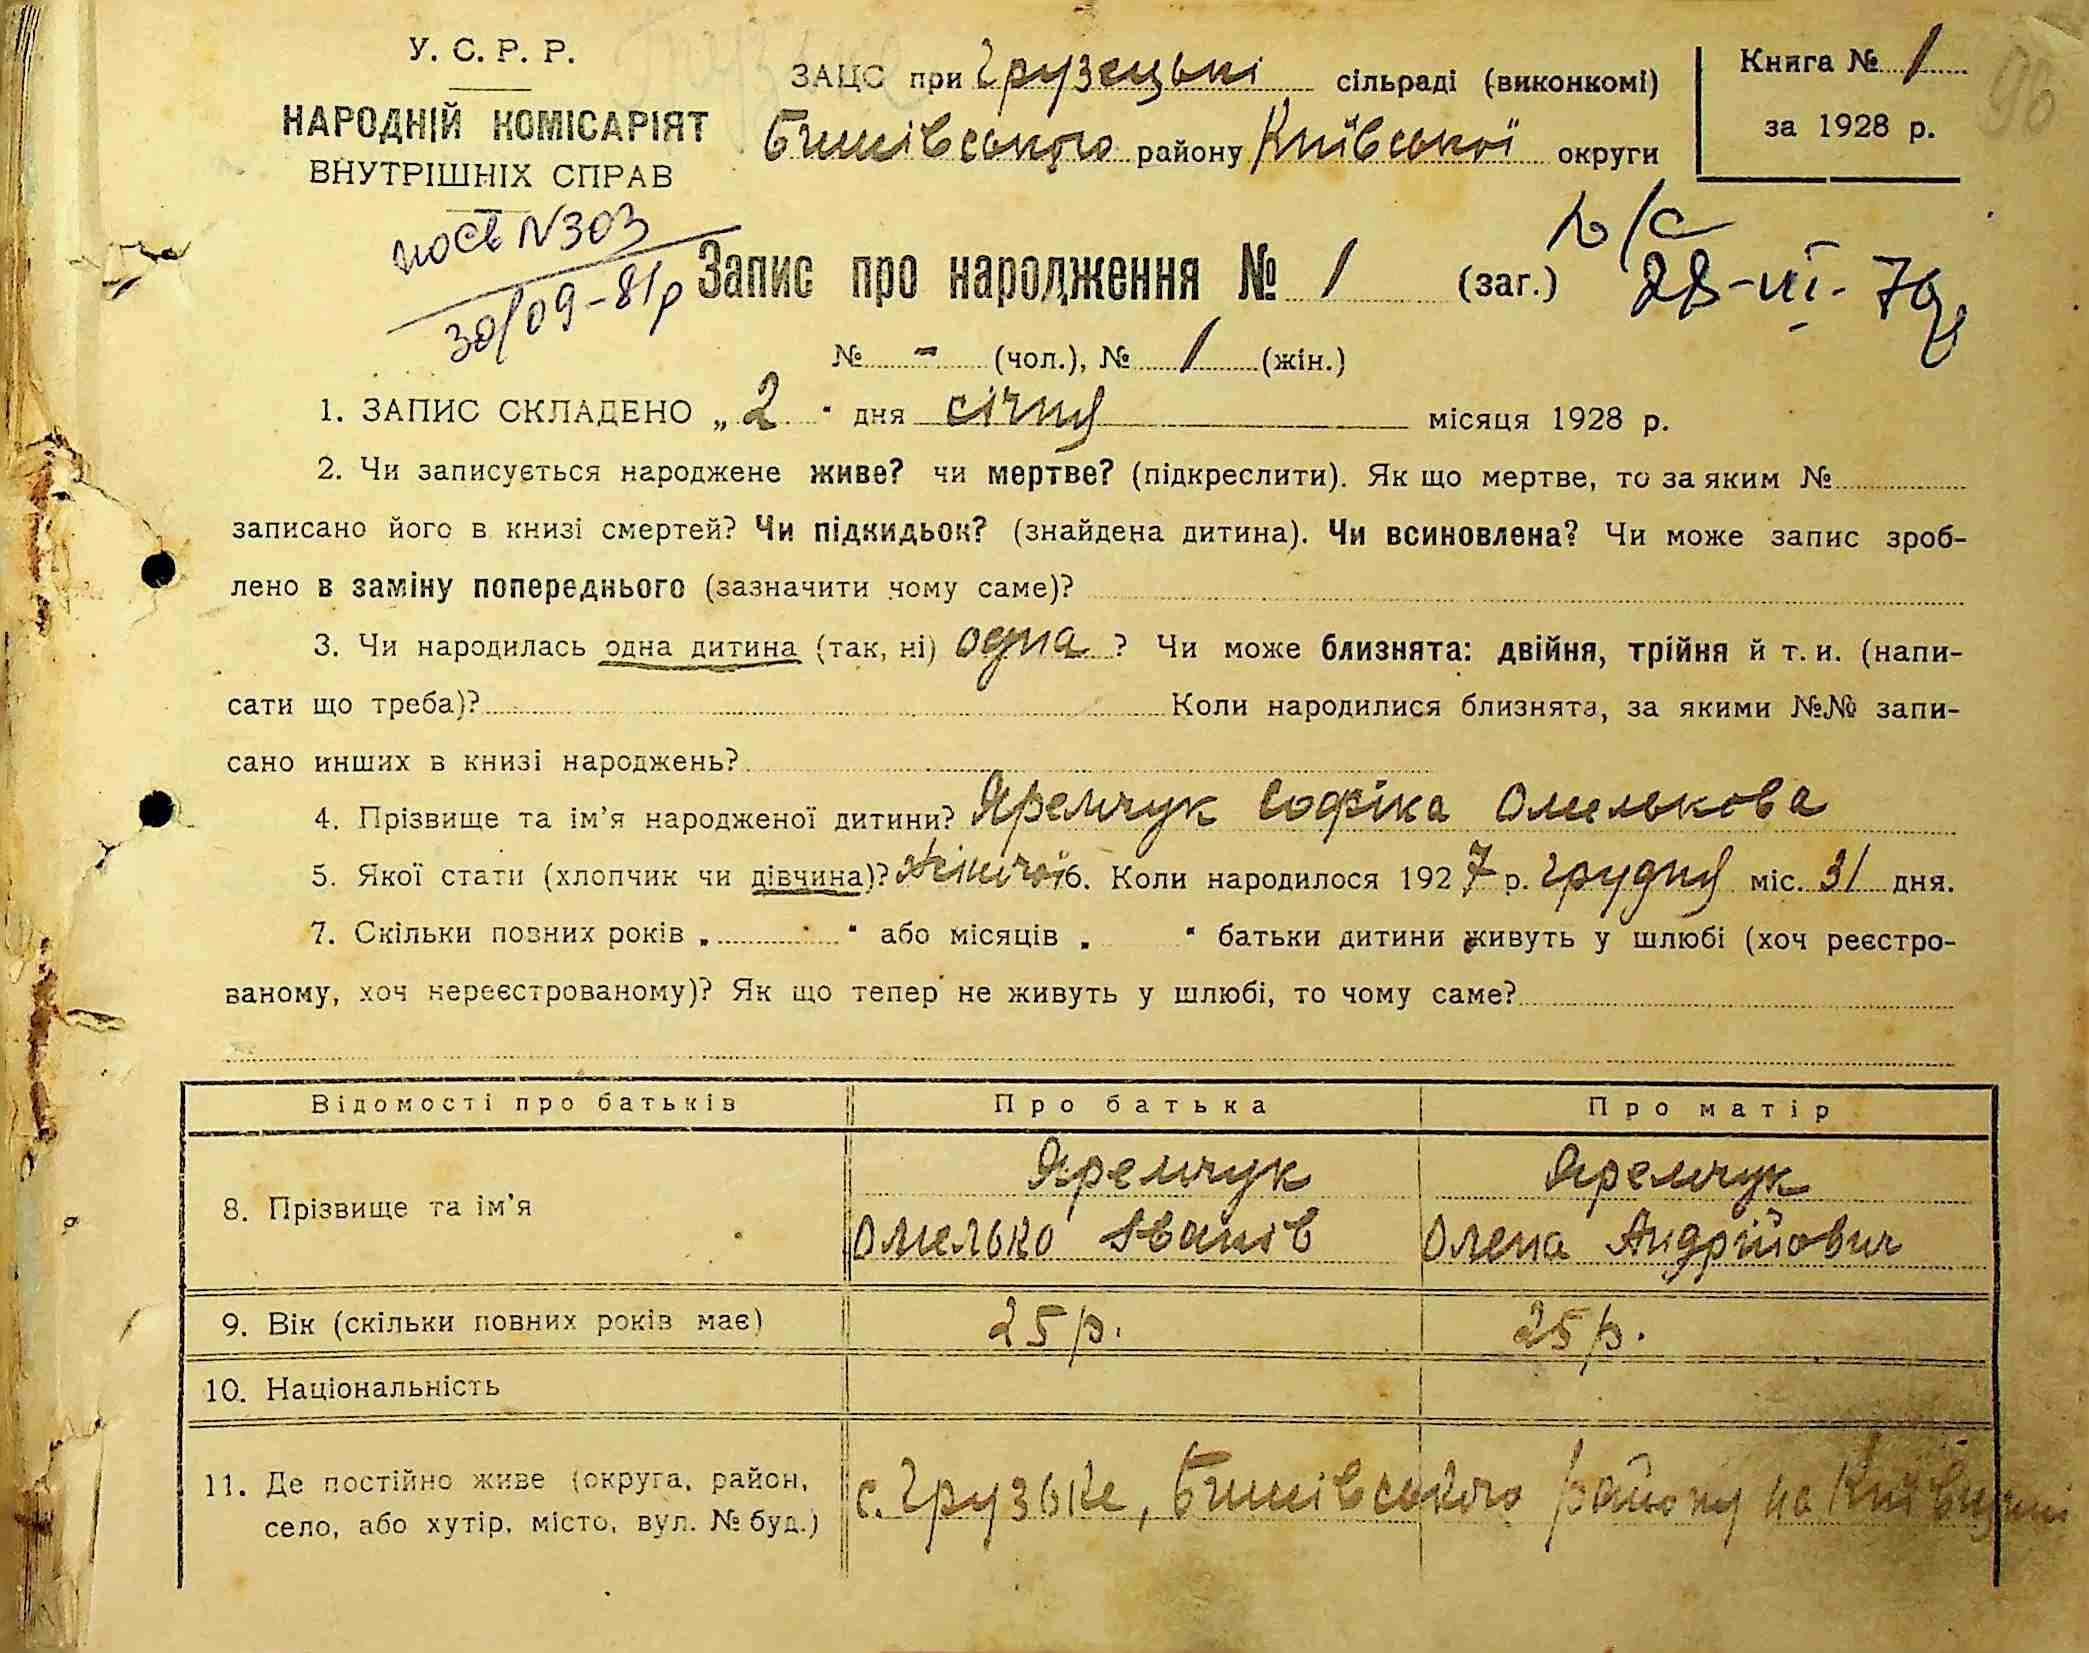 У. С. Р. Р.
НАРОДНІЙ КОМІСАРІЯТ
ВНУТРІШНІХ СПРАВ
ЗАЦС при Грузецькі сільраді (виконкомі)
Бишівського району Київської округи
Книга № 1
за 1928 р.
96
посв N303
30/09-81р
Запис про народження № 1 (заг.)
п/с
28-VII-70р
№ - (чол.), № 1 (жін.)
1. ЗАПИС СКЛАДЕНО „ 2 " дня січня місяця 1928 р.
2. Чи записується народжене живе? чи мертве? (підкреслити). Як що мертве, то за яким №
записано його в книзі смертей? Чи підкидьок? (знайдена дитина). Чи всиновлена? Чи може запис зроб-
лено в заміну попереднього (зазначити чому саме)?
3. Чи народилась одна дитина (так, ні) одна ? Чи може близнята: двійня, трійня й т. и. (напи-
сати що треба)? Коли народилися близнята, за якими №№ запи-
сано инших в книзі народжень?
4. Прізвище та ім'я народженої дитини? Яремчук Софіка Омелькова
5. Якої стати (хлопчик чи дівчина)? жіночої 6. Коли народилося 1927 р. грудня міс. 31 дня.
7. Скільки повних років „ " або місяців „ " батьки дитини живуть у шлюбі (хоч реєстро-
ваному, хоч нереєстрованому)? Як що тепер не живуть у шлюбі, то чому саме?
Відомості про батьків Про батька Про матір
8. Прізвище та ім'я
Яремчук Яремчук
Омелько Іванів Олена Андрійович
9. Вік (скільки повних років має) 25 р. 25 р.
10. Національність
11. Де постійно живе (округа, район,
село, або хутір, місто, вул. № буд.)
с. Грузьке, Бишівського району на Київщині